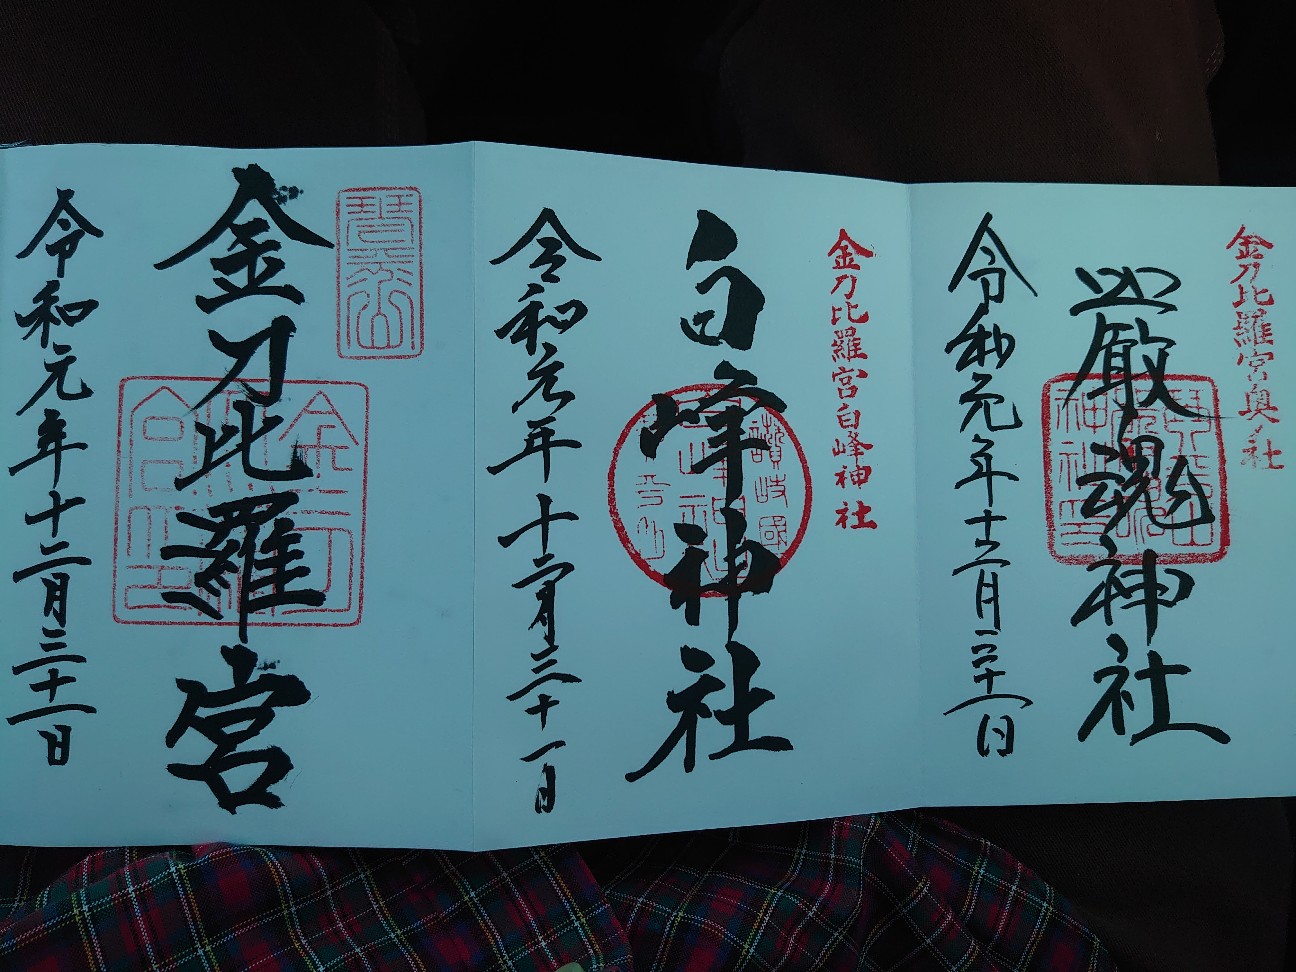 金刀比羅宮奥ノ社
嚴魂神社
令和元年十二月三十一日
金刀比羅宮白峰神社
讃岐國
白峰神社
令和元年十二月三十一日
琴平山
金刀比羅宮
令和元年十二月三十一日